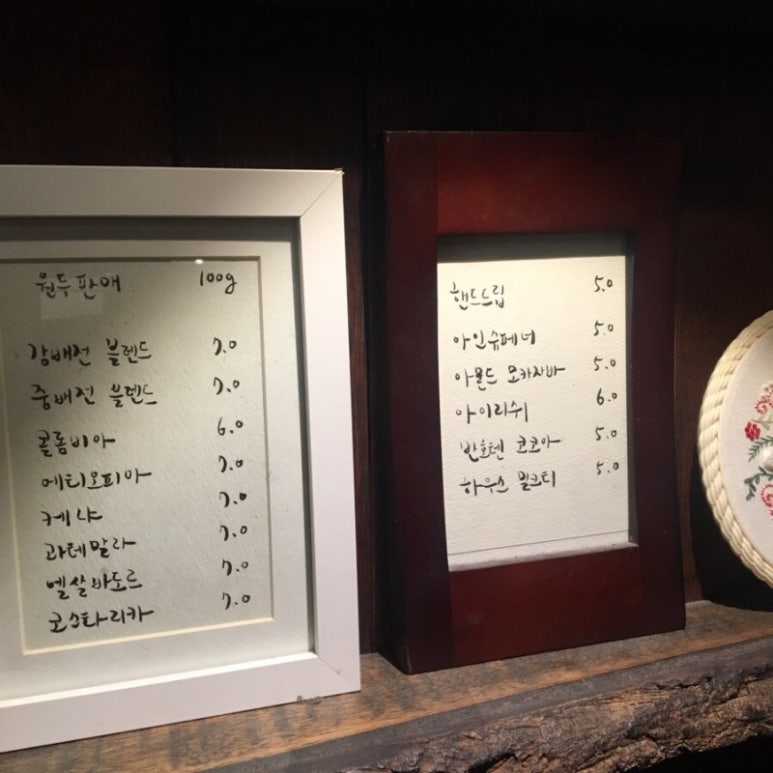 원두판매 100g
강배전 블렌드 7.0
중배전 블렌드 7.0
콜롬비아 6.0
에티오피아 7.0
케냐 7.0
과테말라 7.0
엘살바도르 7.0
코스타리카 7.0
핸드드립 5.0
아인슈페너 5.0
아몬드 모카자바 5.0
아이리쉬 6.0
반호텐 코코아 5.0
하우스 밀크티 5.0